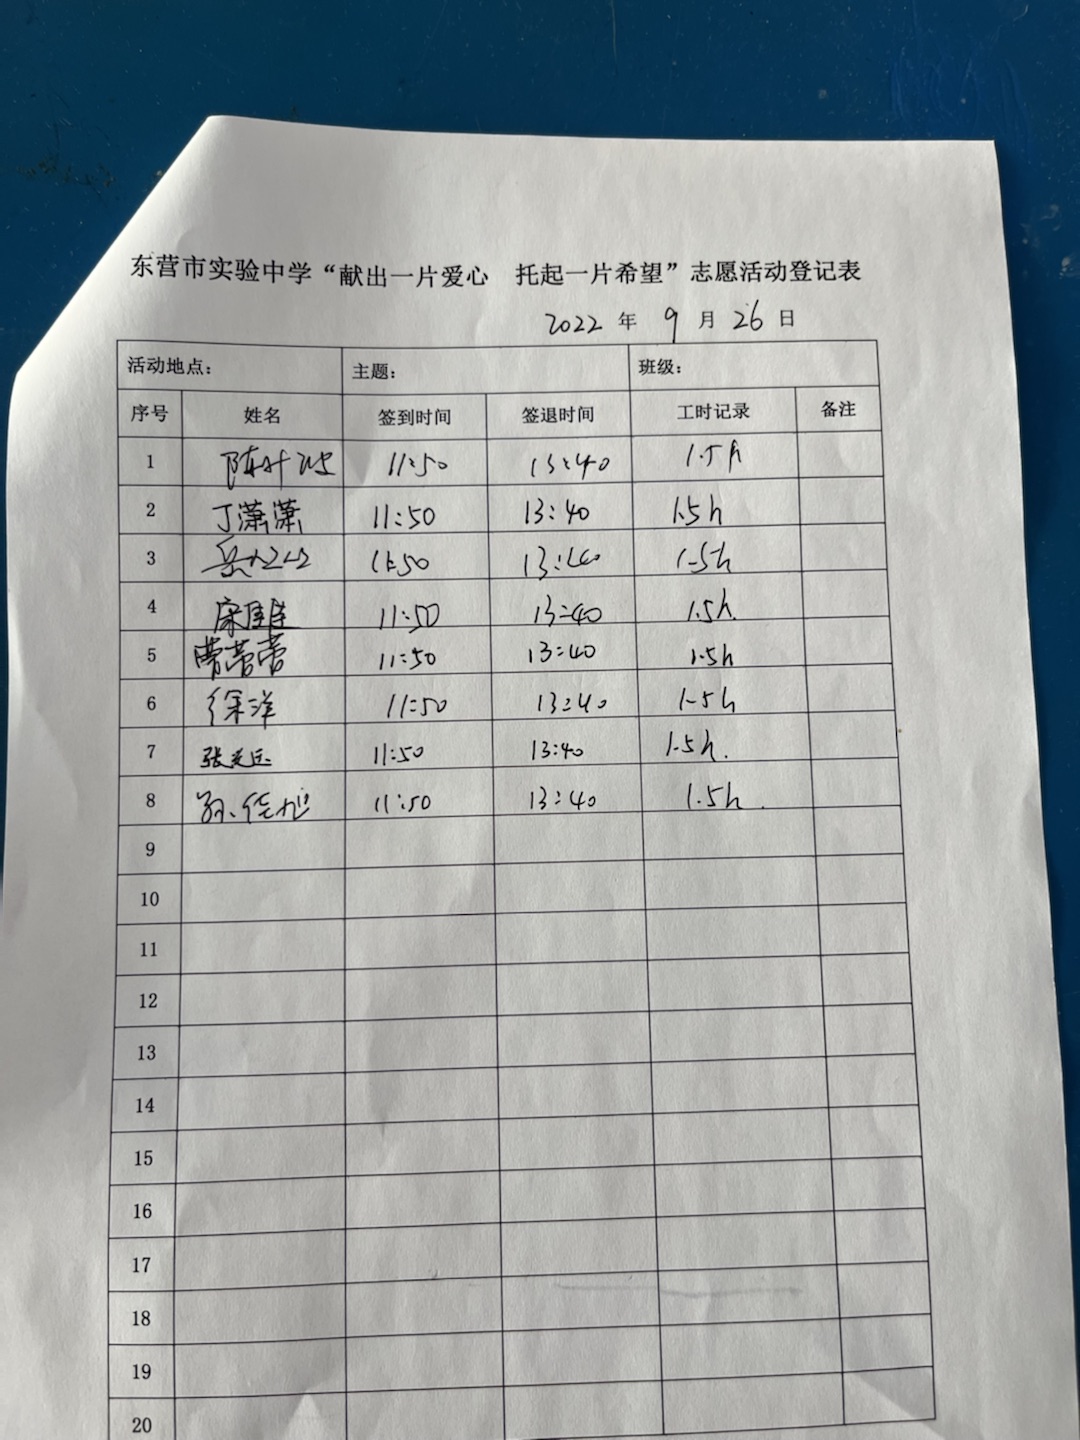 东营市实验中学“献出一片爱心 托起一片希望”志愿活动登记表
2022 年 9 月 26 日
活动地点： 主题： 班级：
序号 姓名 签到时间 签退时间 工时记录 备注
1 陈叶 11:50 13:40 1.5h
2 丁潇潇 11:50 13:40 1.5h
3 11:50 13:40 1.5h
4 11:50 13:40 1.5h.
5 曹蕾蕾 11:50 13:40 1.5h
6 徐洋 11:50 13:40 1.5h
7 张 11:50 13:40 1.5h.
8 孙佳旭 11:50 13:40 1.5h.
9
10
11
12
13
14
15
16
17
18
19
20